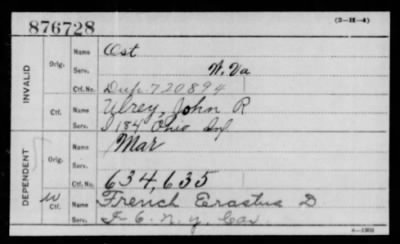 876728 (3-H-4)
INVALID Orig. Name Ost
Serv. W. Va
Ctf. No. Dup. 720894
Ctf. Name Ulrey, John R
Serv. I 184 Ohio Inf
DEPENDENT Orig. Name Mar
Serv.
Ctf. No. 634,635
W Ctf. Name French Erastus D
Serv. F 6 N. Y. Cav